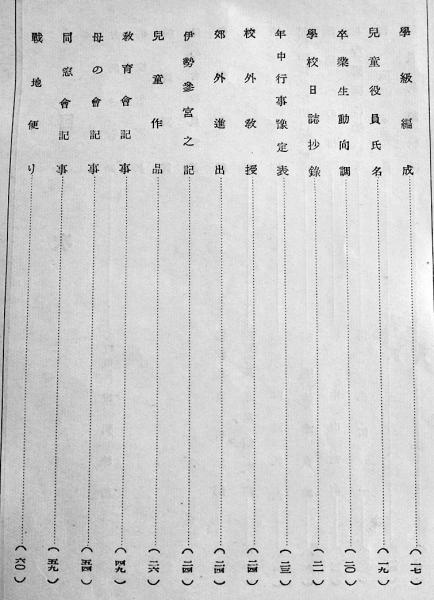 學級編成………(一七)
兒童役員氏名………(一九)
卒業生動向調………(二〇)
學校日誌抄錄………(二一)
年中行事豫定表………(二三)
校外敎授………(二四)
郊外進出………(二四)
伊勢參宮之記………(二四)
兒童作品………(二六)
敎育會記事………(四九)
母の會記事………(五四)
同窓會記事………(五九)
戰地便り………(六〇)